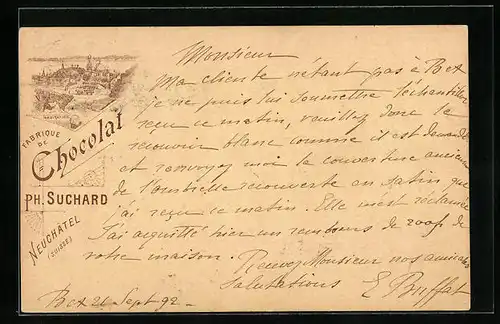 FABRIQUE
DE
Chocolat
PH. SUCHARD
NEUCHÂTEL
(SUISSE)
Monsieur
Ma cliente n'étant pas à Bex
je ne puis lui soumettre l'échantillon
reçu ce matin, veuillez donc le
recouvrir blanc comme il est demandé
et renvoyez moi la couverture ancienne
de l'ombrelle recouverte en satin que
j'ai reçu ce matin. Elle m'est réclamée
J'ai acquitté hier un rembours de
votre maison. Recevez Monsieur nos amicales
salutations E Buffat
Bex 21 Sept 92